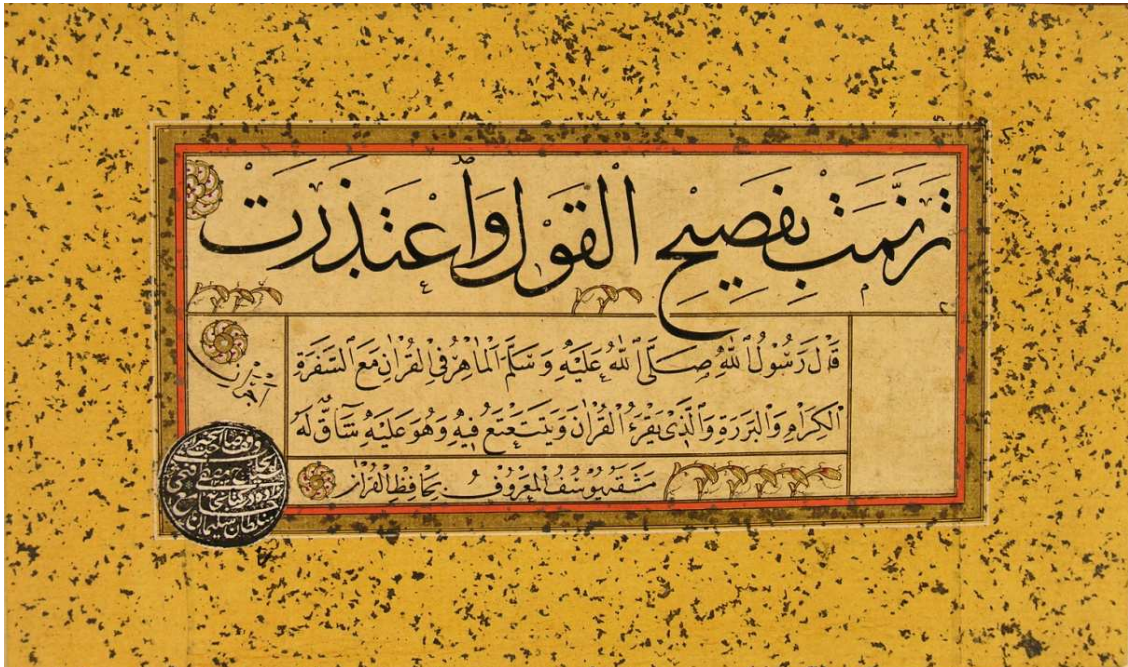 ترنّمَت بفَصِيحِ القَولِ وَاعتَذَرَت
قَالَ رَسُولُ اللهِ صَلَّى اللهُ عَلَيْهِ وَسَلَّمَ اَلمَاهِرُ فِى القُرْاٰنِ مَعَ السَّفَرَةِ
الكِرَامِ وَالبَرَرَةِ وَالَّذِى يَقْرَءُ القُرْاٰنَ وَيَتَتَعْتَعُ فِيهِ وَهُوَ عَلَيْهِ شَاقٌّ لَهُ
اَجْرَانِ
مَشَقَهُ يُوسُفُ المَعْرُوفُ بِحَافِظِ القُرْاٰنِ